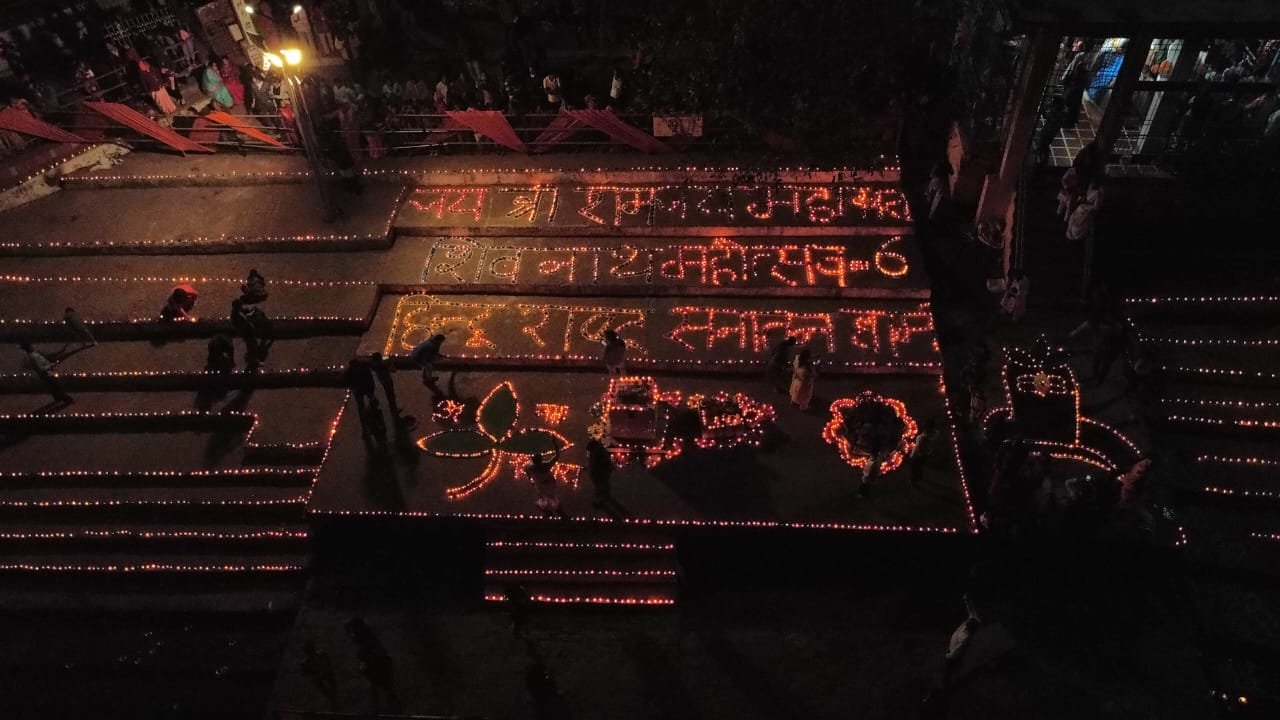 जय श्री राम जय महाकाल
शिव नाथ महोत्सव - 6
हिन्दू राष्ट्र सनातन धर्म